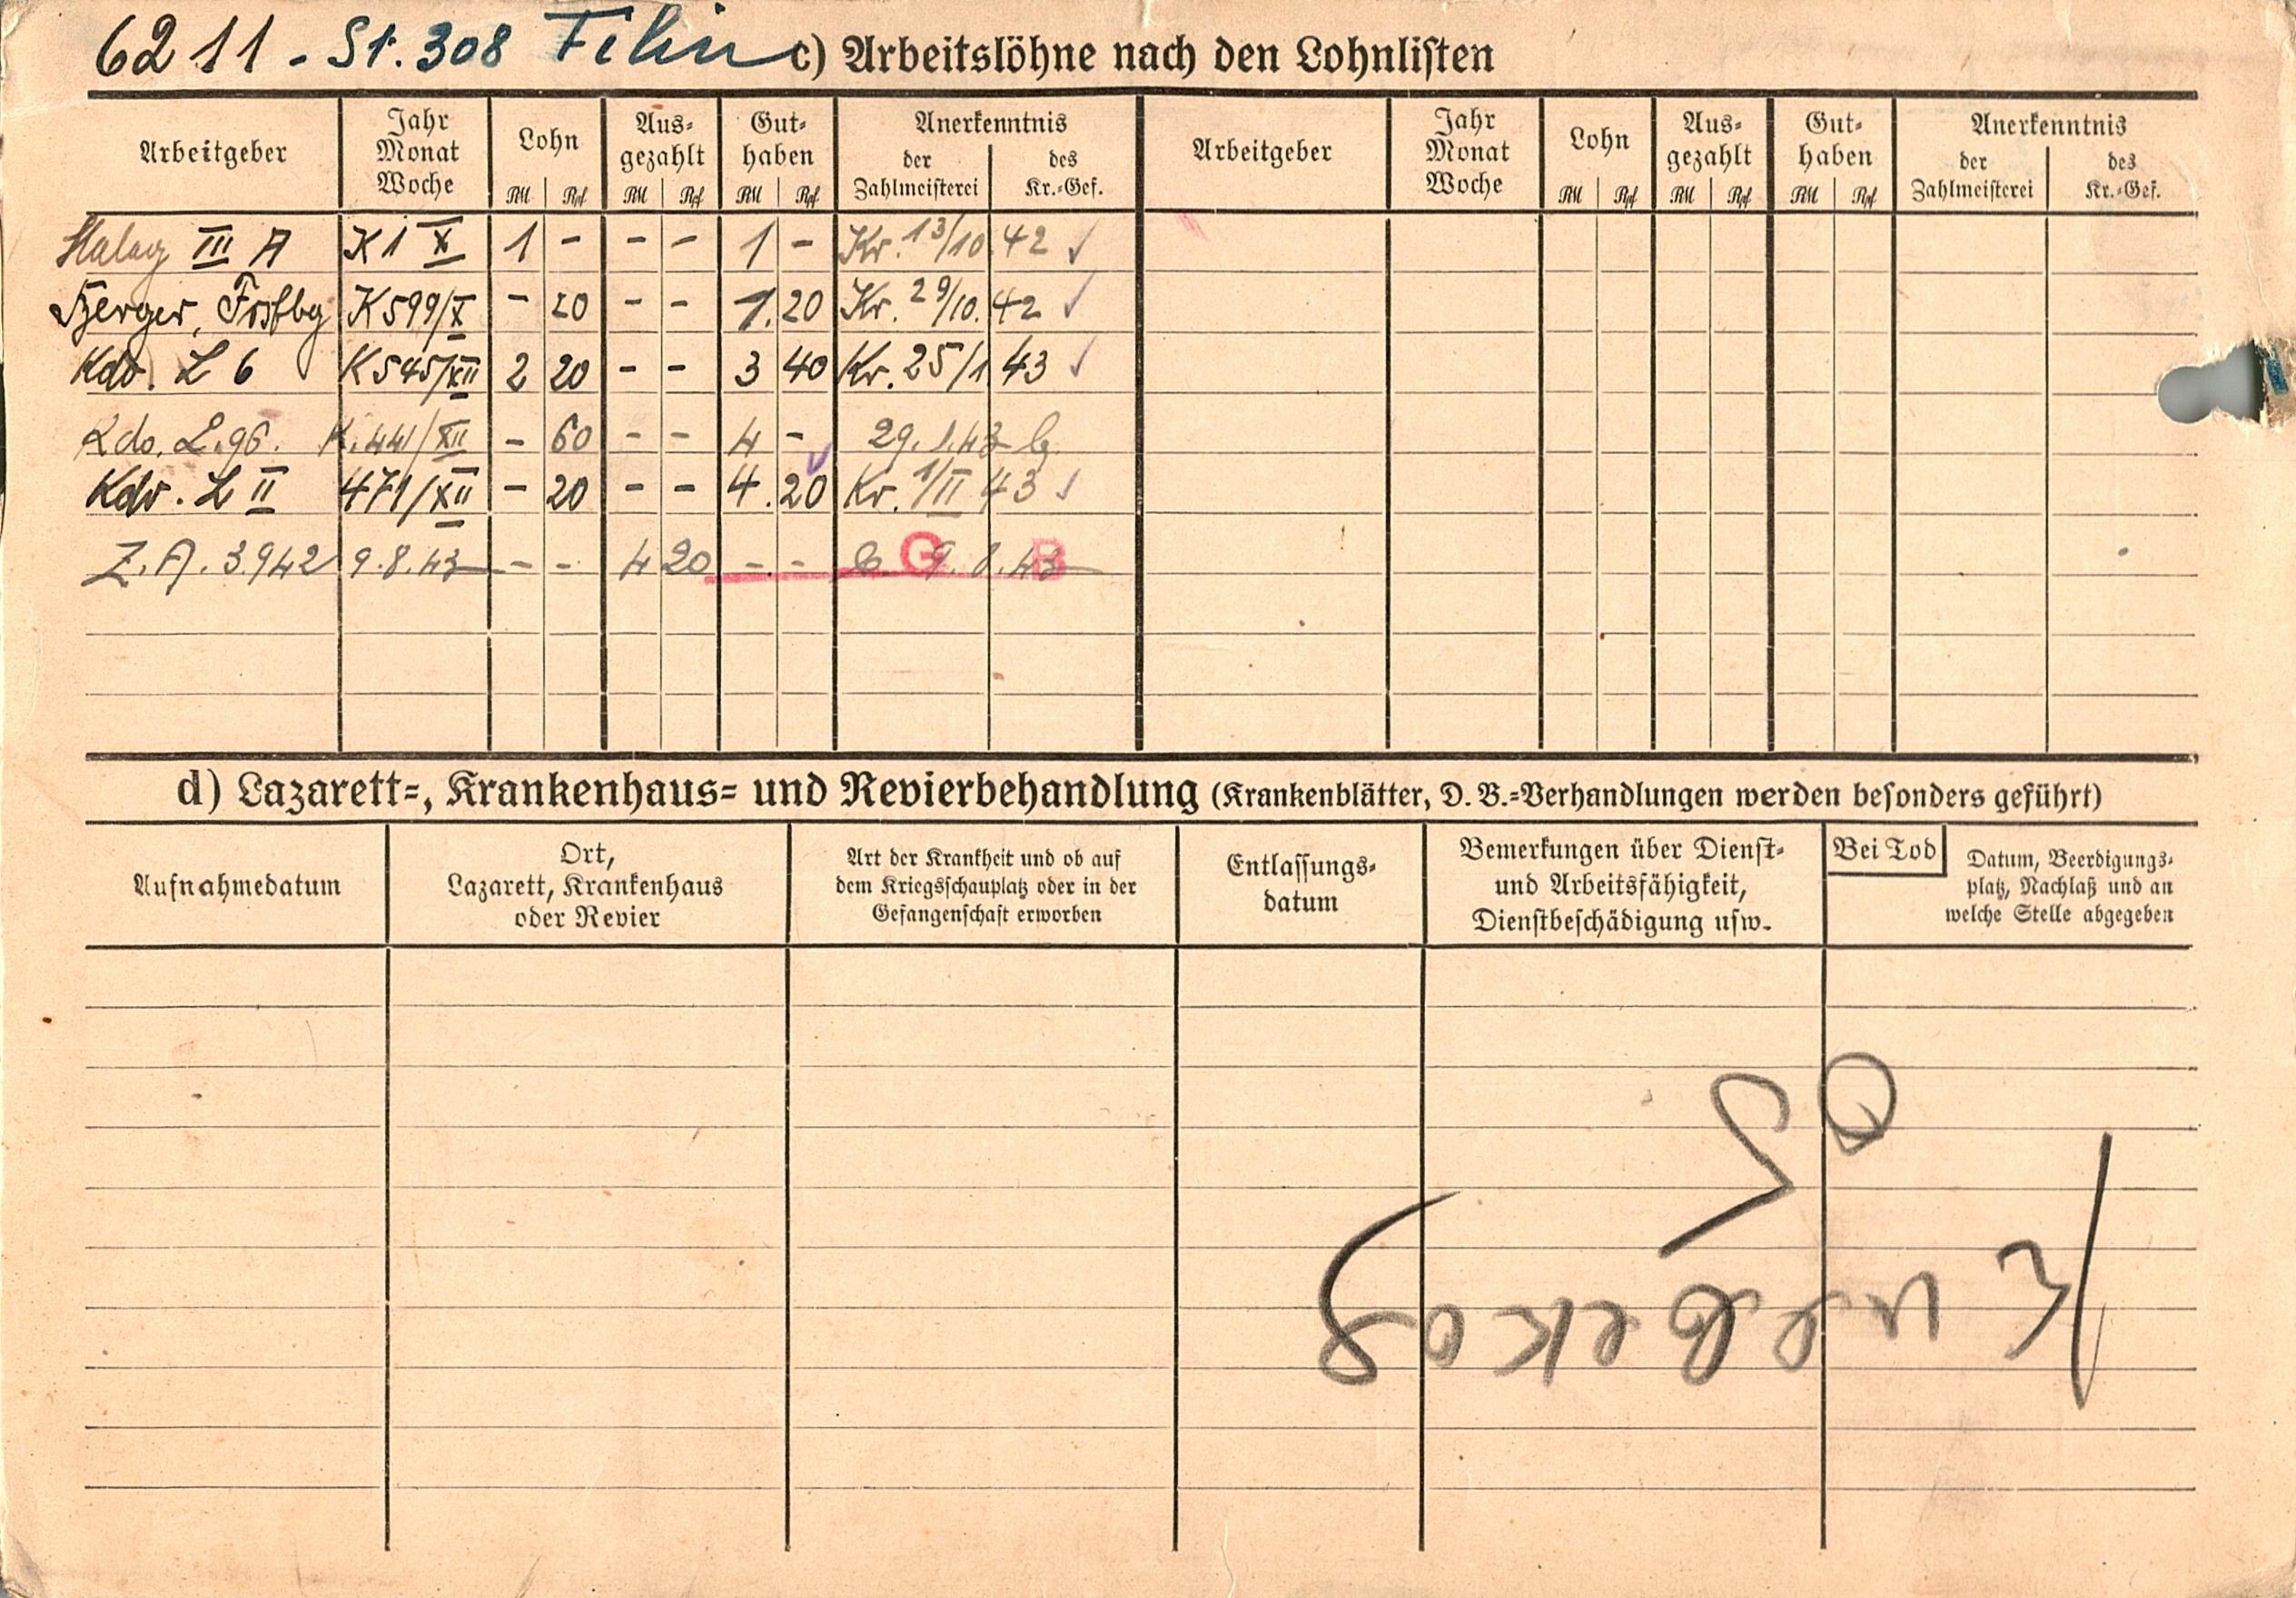 6211 - St. 308 Filin c) Arbeitslöhne nach den Lohnlisten
Arbeitgeber | Jahr Monat Woche | Lohn RM Rpf | Ausgezahlt RM Rpf | Guthaben RM Rpf | Anerkenntnis der Zahlmeisterei | des Kr.-Gef. | Arbeitgeber | Jahr Monat Woche | Lohn RM Rpf | Ausgezahlt RM Rpf | Guthaben RM Rpf | Anerkenntnis der Zahlmeisterei | des Kr.-Gef.
Stalag III A | K1 X | 1 - | - - | 1 - | Kr. 13/10. 42 ✓
Berger, | K599/X | - 20 | - - | 1. 20 | Kr. 29/10. 42 ✓
Kdo. L 6 | K545/XII | 2 20 | - - | 3 40 | Kr. 25/1 43 ✓
Kdo. L. 96. | K. 441/XII | - 60 | - - | 4 - | 29. 1. 43
Kdo. L II | 471/XII | - 20 | - - | 4. 20 | Kr. 1/II 43 ✓
Z. A. 3.942 | 9. 8. 43 | - - | 4 20 | - - | G 9. 8. 43 B
d) Lazarett-, Krankenhaus- und Revierbehandlung (Krankenblätter, D. B.-Verhandlungen werden besonders geführt)
Aufnahmedatum | Ort, Lazarett, Krankenhaus oder Revier | Art der Krankheit und ob auf dem Kriegsschauplatz oder in der Gefangenschaft erworben | Entlassungsdatum | Bemerkungen über Dienst- und Arbeitsfähigkeit, Dienstbeschädigung usw. | Bei Tod Datum, Beerdigungsplatz, Nachlaß und an welche Stelle abgegeben